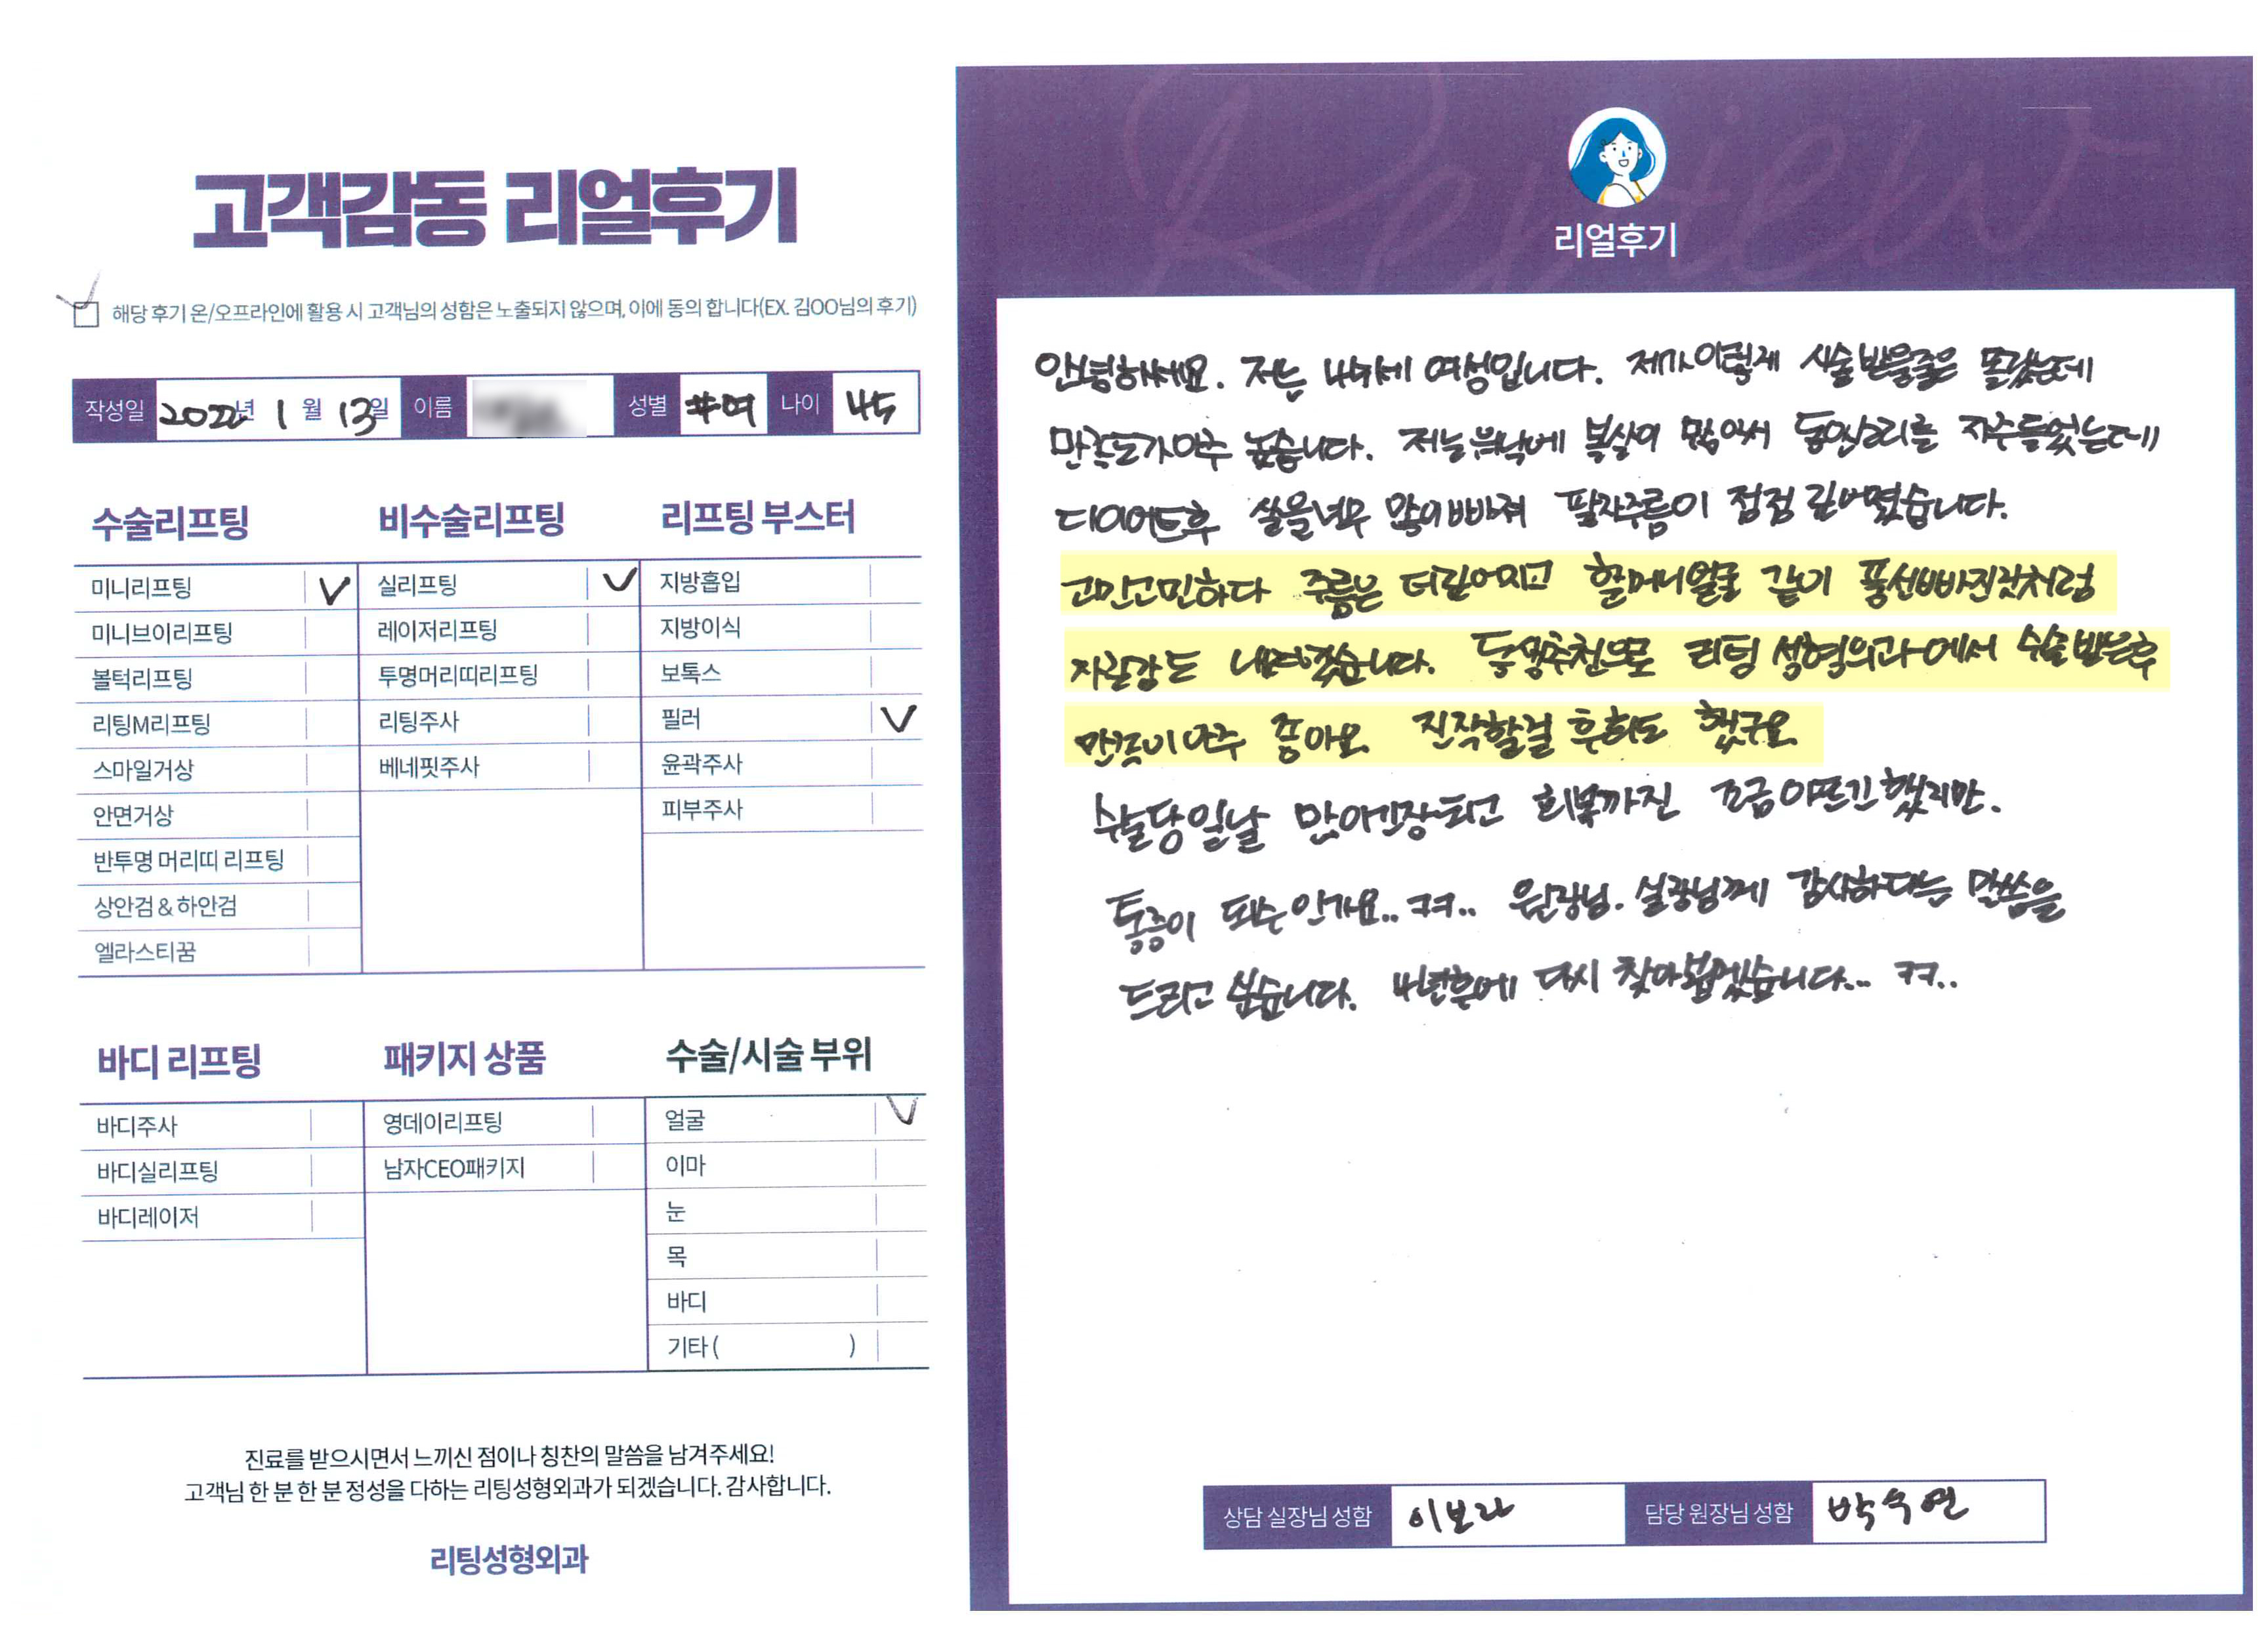 고객감동 리얼후기
해당 후기 온/오프라인에 활용 시 고객님의 성함은 노출되지 않으며, 이에 동의 합니다(EX. 김OO님의 후기)
작성일 2022년 1월 13일 이름 성별 여 나이 45
수술리프팅 비수술리프팅 리프팅 부스터
미니리프팅 V 실리프팅 V 지방흡입
미니브이리프팅 레이저리프팅 지방이식
볼턱리프팅 투명머리띠리프팅 보톡스
리팅M리프팅 리팅주사 필러 V
스마일거상 베네핏주사 윤곽주사
안면거상 피부주사
반투명 머리띠 리프팅
상안검 & 하안검
엘라스티꿈
바디 리프팅 패키지 상품 수술/시술 부위
바디주사 영데이리프팅 얼굴 V
바디실리프팅 남자CEO패키지 이마
바디레이저 눈
목
바디
기타 ( )
진료를 받으시면서 느끼신 점이나 칭찬의 말씀을 남겨주세요!
고객님 한 분 한 분 정성을 다하는 리팅성형외과가 되겠습니다. 감사합니다.
리팅성형외과
Review
리얼후기
안녕하세요. 저는 45세 여성입니다. 제가 이렇게 시술받을줄은 몰랐는데
만족도가 아주 높습니다. 저는 볼살이 많아서 동안소리를 자주들었는데
다이어트후 살을 너무 많이 빠져 팔자주름이 점점 깊어졌습니다.
고민고민하다 주름은 더 깊어지고 할머니얼굴 같이 풍선빠진것처럼
자존감도 내려갔습니다. 동생추천으로 리팅 성형외과에서 수술받은후
만족이 아주 좋아요 진작할걸 후회도 했구요
수술당일날 많이 긴장되고 회복까진 조금 아프긴 했지만.
통증이 ㅋㅋ.. 원장님. 실장님께 감사하다는 말씀을
드리고 싶습니다. 4년후에 다시 찾아뵙겠습니다... ㅋㅋ..
상담 실장님 성함 이보라 담당 원장님 성함 박수연